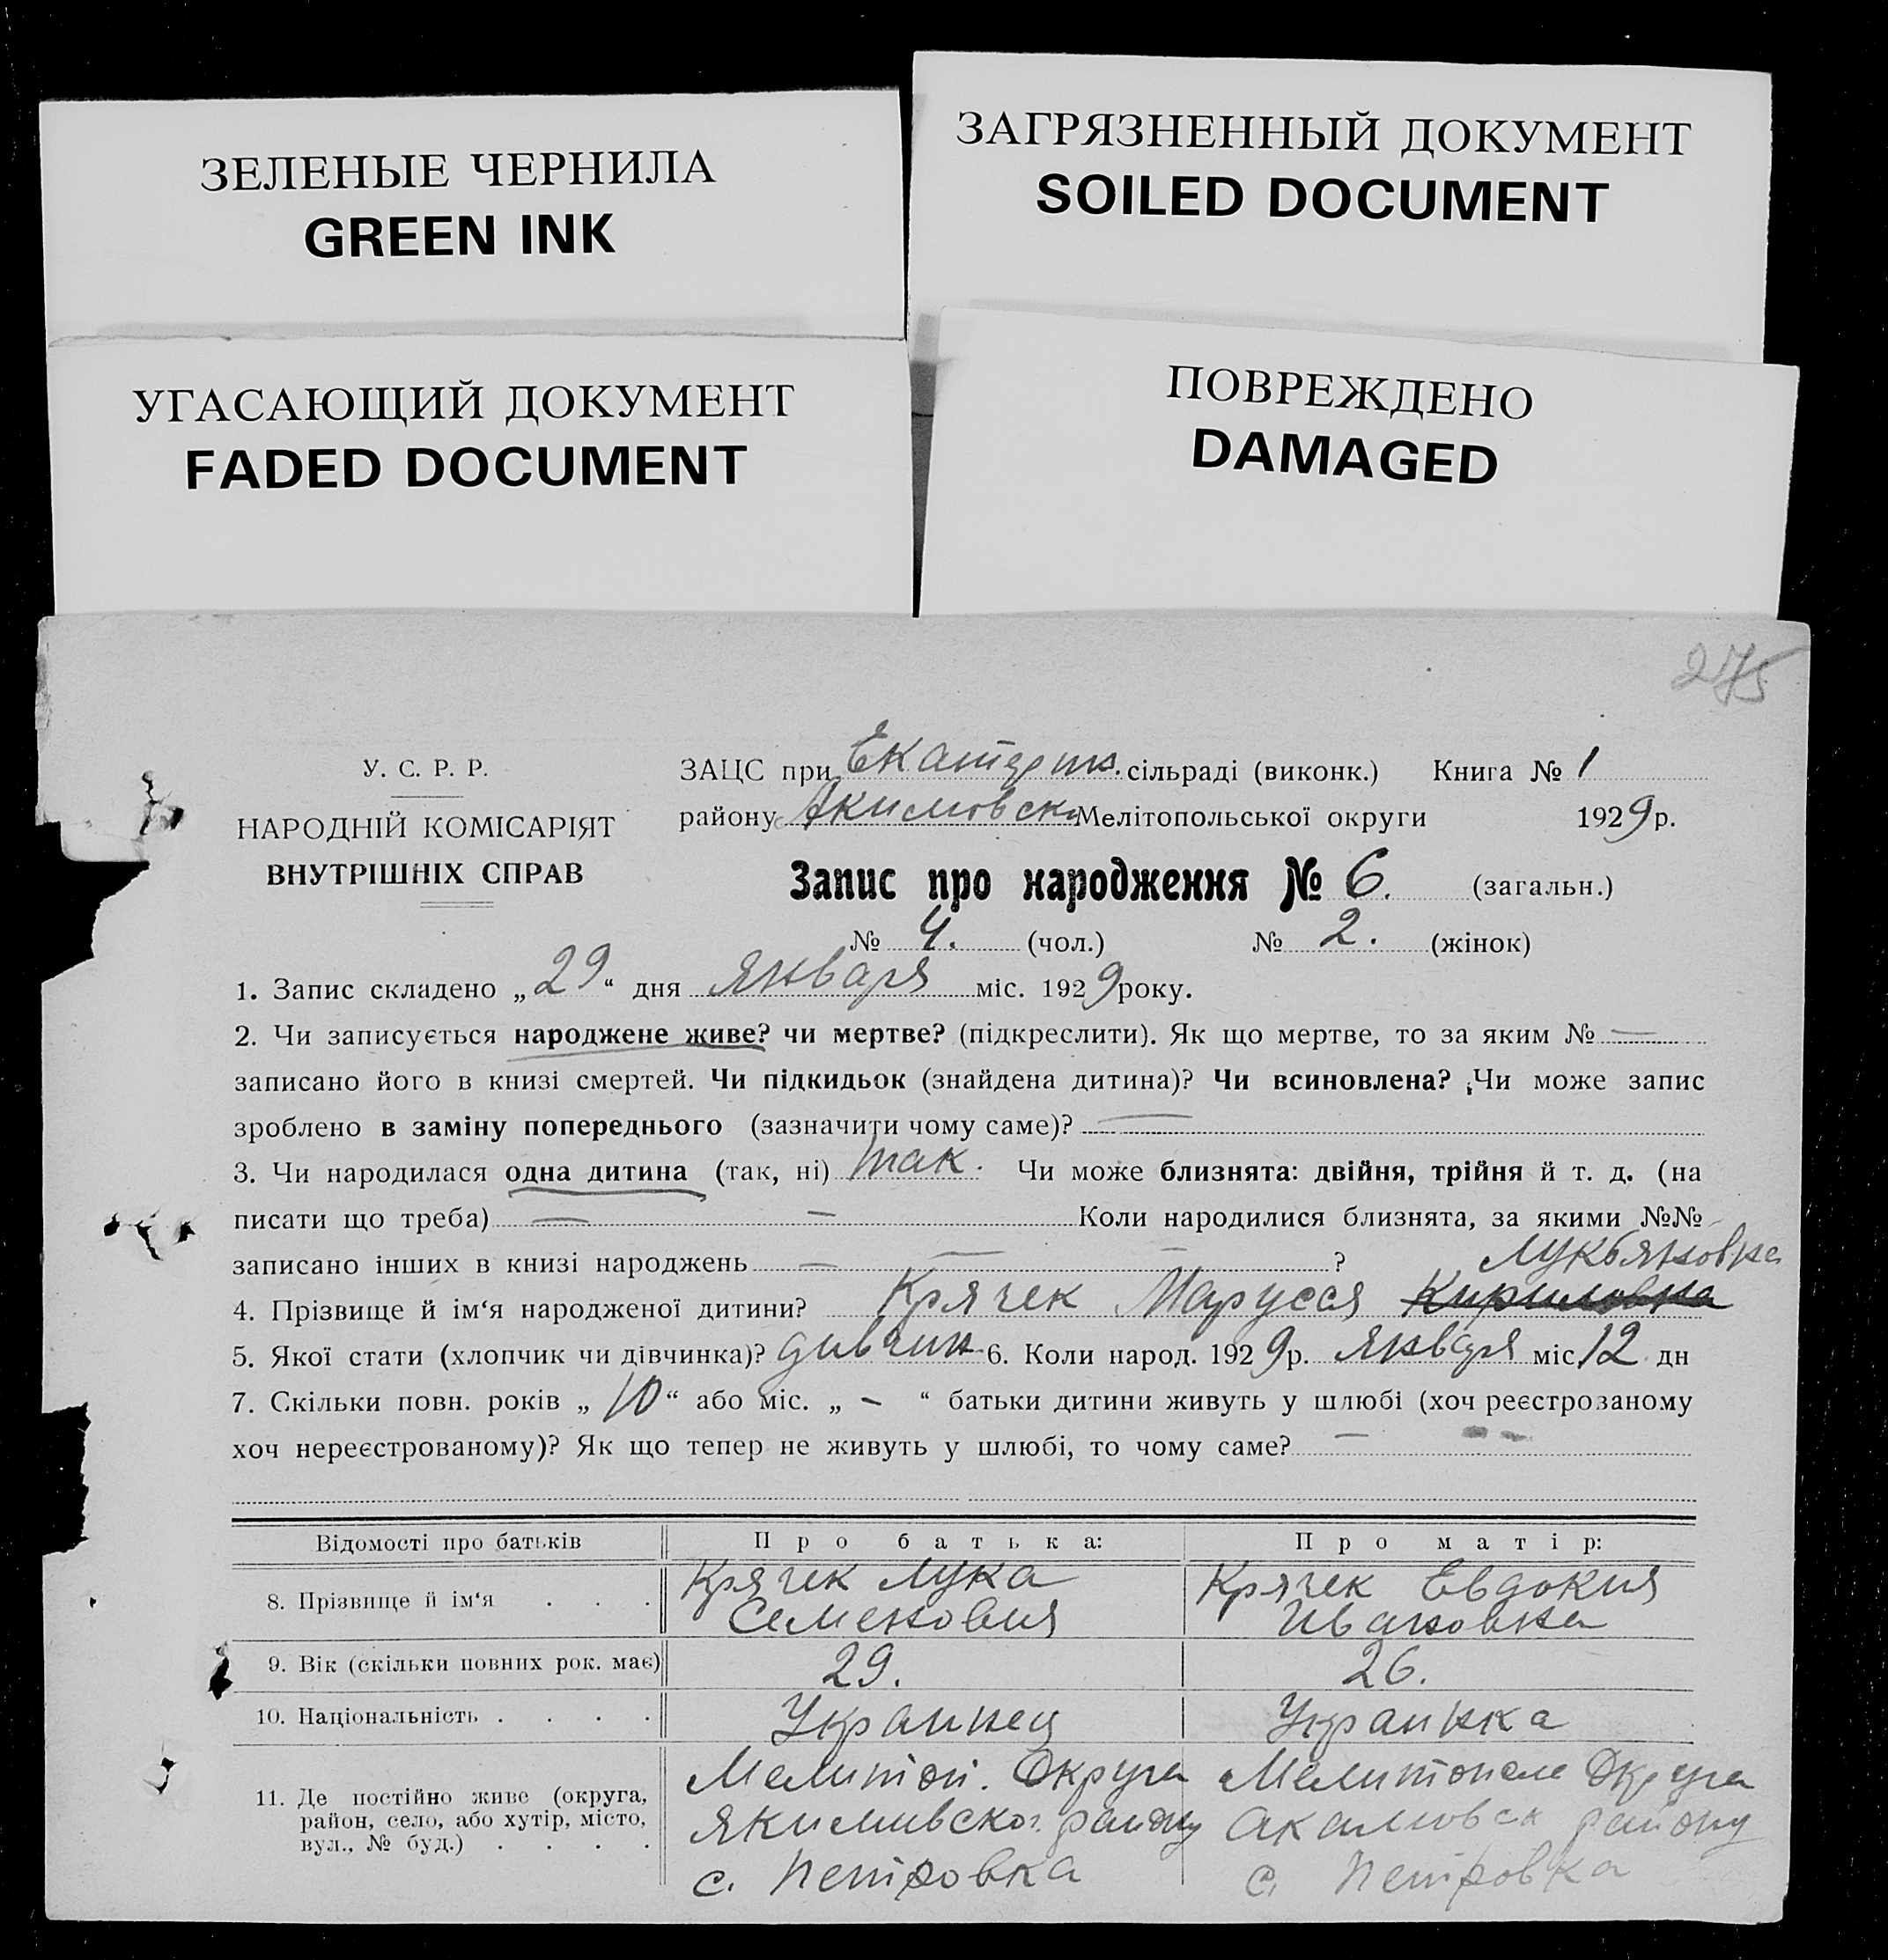 ЗЕЛЕНЫЕ ЧЕРНИЛА
GREEN INK
ЗАГРЯЗНЕННЫЙ ДОКУМЕНТ
SOILED DOCUMENT
УГАСАЮЩИЙ ДОКУМЕНТ
FADED DOCUMENT
ПОВРЕЖДЕНО
DAMAGED
275
У. С. Р. Р.
НАРОДНІЙ КОМІСАРІЯТ
ВНУТРІШНІХ СПРАВ
ЗАЦС при сільраді (виконк.) Книга № 1
району Акимовск Мелітопольської округи 1929 р.
Запис про народження № 6. (загальн.)
№ 4. (чол.) № 2. (жінок)
1. Запис складено „29“ дня Января міс. 1929 року.
2. Чи записується народжене живе? чи мертве? (підкреслити). Як що мертве, то за яким № —
записано його в книзі смертей. Чи підкидьок (знайдена дитина)? Чи всиновлена? Чи може запис
зроблено в заміну попереднього (зазначити чому саме)? —
3. Чи народилася одна дитина (так, ні) так. Чи може близнята: двійня, трійня й т. д. (на
писати що треба) — — Коли народилися близнята, за якими №№
записано інших в книзі народжень — — — ? Лукьяновна
4. Прізвище й ім‘я народженої дитини? Крячек Маруся Кириловна
5. Якої стати (хлопчик чи дівчинка)? дивчин 6. Коли народ. 1929 р. Января міс. 12 дн
7. Скільки повн. років „10“ або міс. „ – “ батьки дитини живуть у шлюбі (хоч реєстрованому
хоч нереєстрованому)? Як що тепер не живуть у шлюбі, то чому саме? —
Відомості про батьків Про батька: Про матір:
8. Прізвище й ім‘я . . . Крячек Лука Семенович Крячек Евдокия Ивановна
9. Вік (скільки повних рок. має) 29. 26.
10. Національність . . . . Украинец Украинка
11. Де постійно живе (округа, район, село, або хутір, місто, вул., № буд.) . . . .
Мелитоп. Округа Округа
району району
с. Петровка с. Петровка